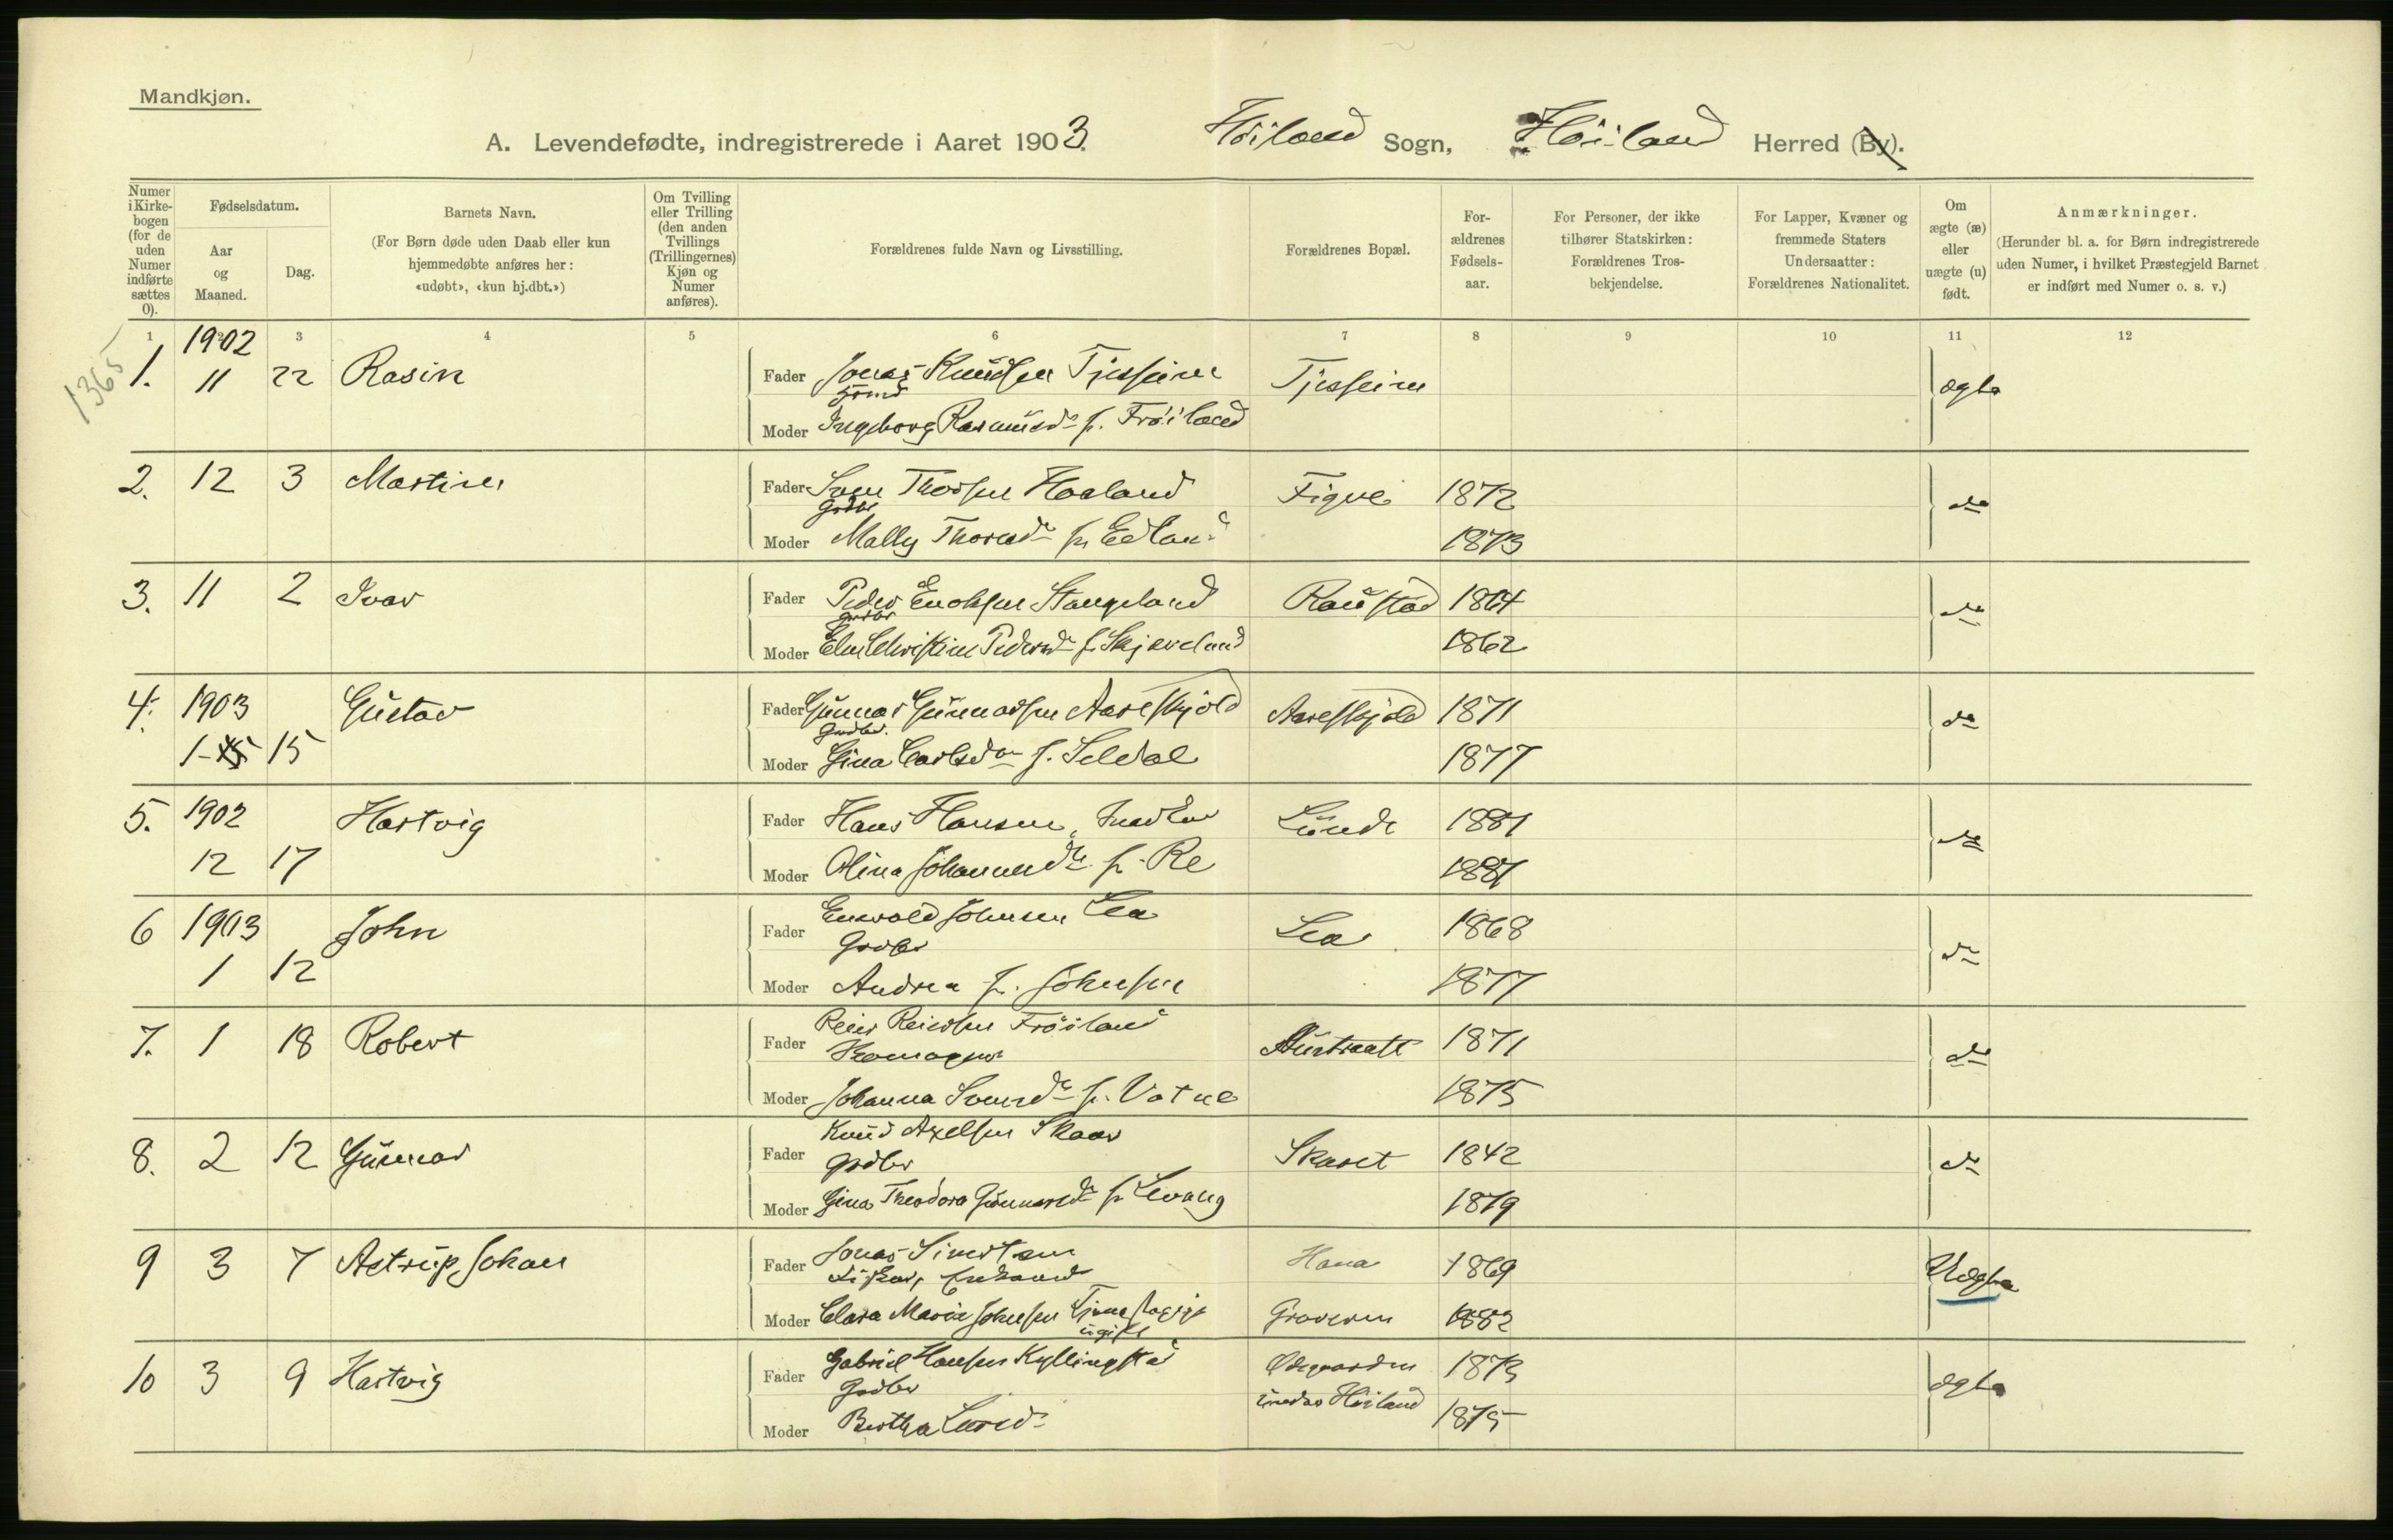 Mandkjøn.
A. Levendefødte, indregistrerede i Aaret 1903. Höiland Sogn, Höiland Herred (By).
Numer i Kirkebogen (for de uden Numer indførte sættes 0).
Fødselsdatum.
Aar og Maaned.
Dag.
Barnets Navn.
(For Børn døde uden Daab eller kun hjemmedøbte anføres her: «udøbt», «kun hj.dbt.»)
Om Tvilling eller Trilling (den anden Tvillings (Trillingernes) Kjøn og Numer anføres).
Forældrenes fulde Navn og Livsstilling.
Forældrenes Bopæl.
Forældrenes Fødselsaar.
For Personer, der ikke tilhører Statskirken: Forældrenes Trosbekjendelse.
For Lapper, Kvæner og fremmede Staters Undersaatter: Forældrenes Nationalitet.
Om ægte (æ) eller uægte (u) født.
Anmærkninger.
(Herunder bl. a. for Børn indregistrerede uden Numer, i hvilket Præstegjeld Barnet er indført med Numer o. s. v.)
1 2 3 4 5 6 7 8 9 10 11 12
1365
1902
1. 11 22 Rasin Fader Jonas Knudsen Tjesseim Tjesseim ægte
Moder Ingeborg Rasmusdr f. Fröiland
2. 12 3 Martin Fader Sven Thorsen Haaland Figve 1872 do
Grdbr
Moder Mally Thorsdr f. Edland 1873
3. 11 2 Ivar Fader Peder Enoksen Stangeland Raustad 1864 do
Grdbr
Moder Elen Christine Pedersdr f. Skjæveland 1862
4. 1903 Gustav Fader Gunnar Gunnarsen Aareskjold Aareskjold 1871 do
1 15 Grdbr.
Moder Gina Carlsdr f. Seldal 1877
5. 1902 Hartvig Fader Hans Hansen, Lunde 1881 do
12 17 Moder Olina Johannesdr f. Re 1881
6 1903 John Fader Enevold Johnsen Lea Lea 1868 do
1 12 Grdbr
Moder Andrea f. Johnsen 1877
7. 1 18 Robert Fader Reier Reiersen Fröiland Austraatt 1871 do
Moder Johanna Svensdr f. Vatne 1875
8. 2 12 Gunnar Fader Knud Axelsen Skaar Skaret 1842 do
Grdbr
Moder Gina Theodora Gunnarsdr f. Levang 1879
9 3 7 Astrup Johan Fader Jonas Hana 1869 Uægte
Fisker, Enkemand
Moder Clara Marie Johnsen Tjenestepige Graveren 1882
ugift
10 3 9 Hartvig Fader Gabriel Hansen Kyllingstad Ödegaarden 1873 ægte
Grdbr under Höiland
Moder Bertha 1875